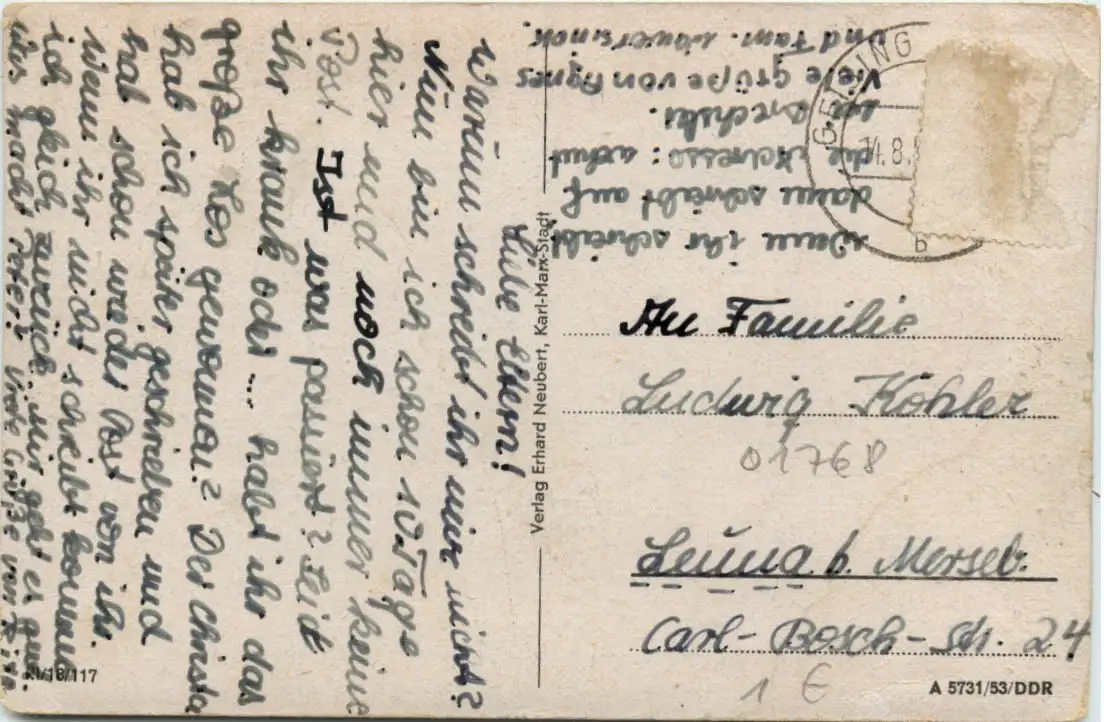 Liebe Eltern!
Warum schreibt ihr mir nicht?
Nun bin ich schon 10 Tage
hier und noch immer keine
Post. Ist was passiert? Seid
ihr krank oder... habt ihr das
große Los gewonnen? Der Christa
hab ich später geschrieben und
hab schon wieder Post von ihr.
Wenn ihr nicht schreibt komme
ich gleich zurück. Mir geht es gut.
Was macht Peter? Viele Grüße von
Wenn ihr schreibt
dann schreibt auf
die Adresse: wohnt
bei
Viele Grüße von Agnes
und Fam.
GEISING
14.8.5
b
An Familie
Ludwig Köhler
01768
Leuna b. Merseb.
Carl-Bosch-Str. 24
1 €
Verlag Erhard Neubert, Karl-Marx-Stadt
XI/18/117
A 5731/53/DDR